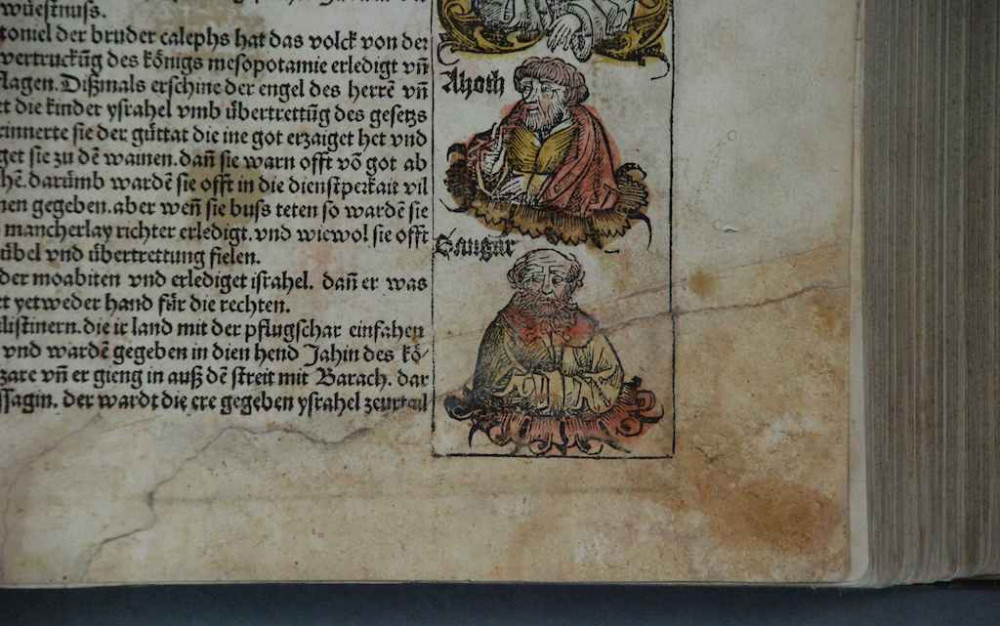 wüestnuss.
toniel der bruder calephs hat das volck von der
vertruckũg des kõnigs mesopotamie erledigt vñ
lagen. Dißmals erschine der engel des herrẽ vñ
t die kinder ysrahel vmb übertrettũg des gesetzs
rinnerte sie der gũttat die ine got erzaiget het vnd
get sie zu dẽ wainen. dañ sie warn offt võ got ab
hẽ. darũmb wardẽ sie offt in die dienstperkait vil
nen gegeben. aber weñ sie buss teten so wardẽ sie
mancherlay richter erledigt. vnd wiewol sie offt
übel vnd übertrettung fielen.
der moabiten vnd erlediget israhel. dañ er was
t yetweder hand für die rechten.
listinern. die ir land mit der pflugschar einfahen
vnd wardẽ gegeben in dien hend Jahin des kö/
zare vñ er gieng in auß dẽ streit mit Barach. dar
ssagin. der wardt die ere gegeben ysrahel zeurtail
Ahoth
Sangar